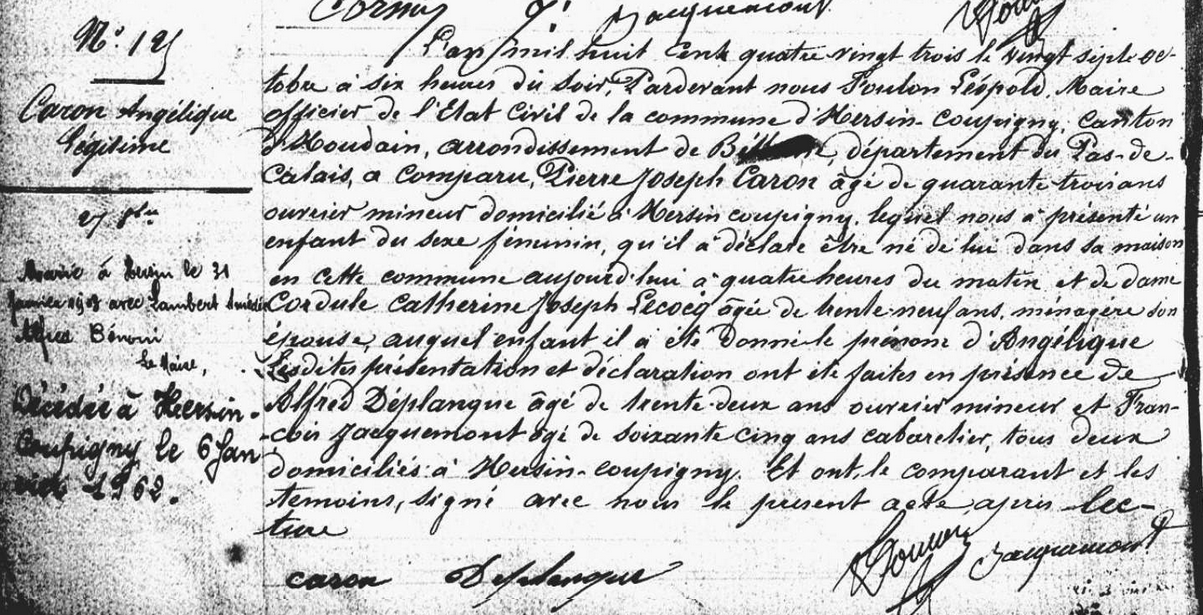 Cornu J. Jacquemont
N° 125
Caron Angélique
Légitime
27 8bre
Marié à Hersin le 31
janvier avec Lambert
Alfred Bénoni
Le Maire,
Décédée à Hersin-
Coupigny le 6 Jan-
vier 1962.
L'an mil huit cent quatre vingt trois le vingt sept oc-
tobre à six heures du soir, Pardevant nous Foulon Léopold, Maire
officier de l'Etat Civil de la commune d'Hersin-coupigny, canton
d'Houdain, arrondissement de Béthune, département du Pas-de-
Calais, a comparu, Pierre Joseph Caron âgé de quarante trois ans
ouvrier mineur domicilié à Hersin coupigny, lequel nous a présenté un
enfant du sexe féminin, qu'il a déclaré être né de lui dans sa maison
en cette commune aujourd'hui à quatre heures du matin et de dame
Cordule Catherine Joseph Lecocq âgée de trente neuf ans, ménagère son
épouse, auquel enfant il a été donné le prénom d'Angélique
Lesdites présentation et déclaration ont été faites en présence de
Alfred Déplanque âgé de trente deux ans ouvrier mineur et Fran-
cois Jacquemont âgé de soixante cinq ans cabaretier, tous deux
domiciliés à Hersin-coupigny. Et ont le comparant et les
temoins, signé avec nous le présent acte après lec-
ture
caron Deplanque Jacquemont